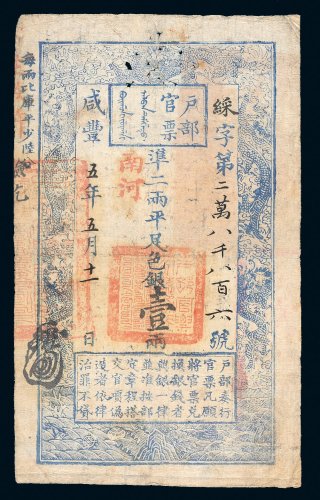 戶部
官票
綵字第二萬八千八百六號
準二兩平足色銀壹兩
南河
咸豐五年五月十一日
每兩比庫平少陸
戶部奏行
官票凡願
將官票兌
換銀錢者
與銀一律
並准按部
定章程搭
交官項偽
造者依律
治罪不貸